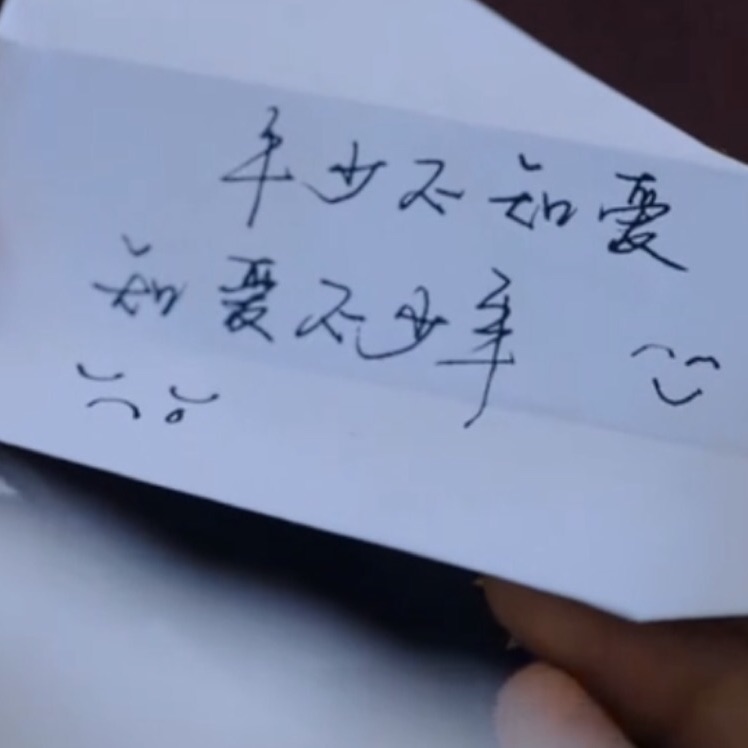 年少不知爱
知爱不少年